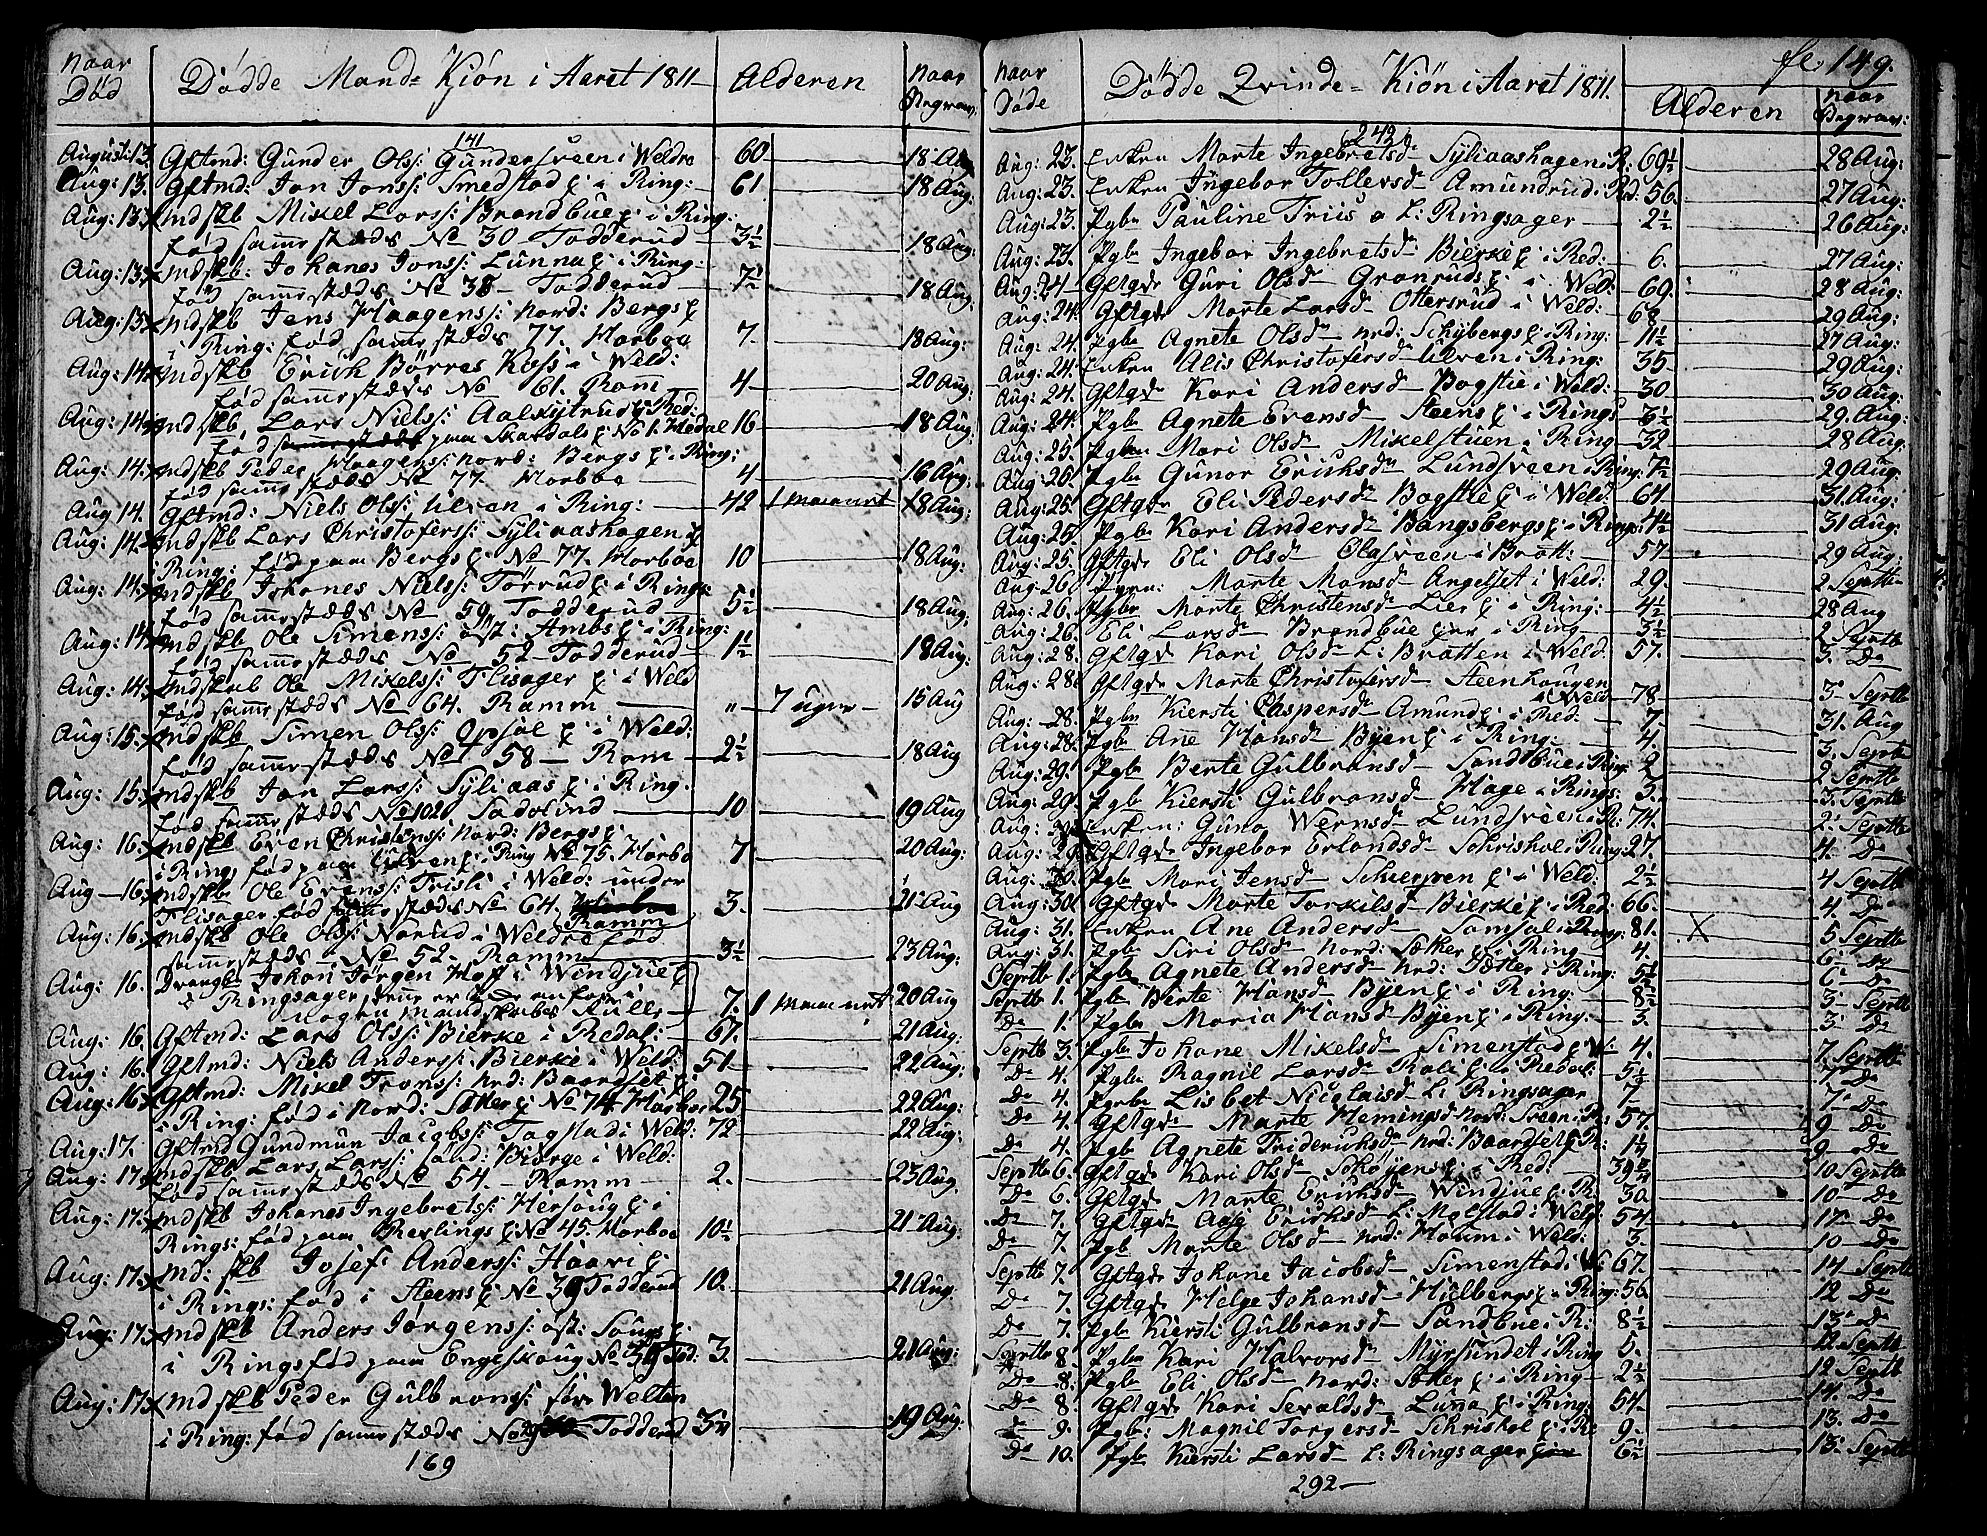 naar Død
Dödde Mand= Kiøn i Aaret 1811
Alderen
naar Begrav:
141
August: 13. Gftmd: Gunder Ols: Gundersveen i Weldre 60 18 Aug
Aug: 13. Gftmd: Jon Jons: Smedstad i Ring: 61 18 Aug:
Aug: 13. Mdskb Mikel Lars: Brandbue i Ring:
fød samestæds No 30 Todderud 3½ 18 Aug:
Aug: 13. Mdskb: Johanes Jons: Lunna i Ring:
fød samestæds No 38 Todderud 7½ 18 Aug:
Aug: 13. Mdskb Jens Haagens: Nord: Bergs
i Ring: fød samestæds 77. Horboe 7. 18 Aug:
Aug: 14. Mdskb Erich Börres Koss i Weld:
fød samestæds No 61. Ram 4 20 Aug:
Aug: 14. Mdskb Lars Niels: Aalskytrud Red:
fød paa Skardals No 1. Hedal 16 18 Aug:
Aug: 14. Mdskb Peder Haagens: Nord: Bergs i Ring:
fød samestæds No 77 Horboe 4 16 Aug:
Aug 14. Gftmd: Niels Ols: Ulven i Ring: 42 1 maanet 18 Aug:
Aug: 14. Mdskb Lars Christofers: Syliaashagen
i Ring: fød paa Bergs No 77. Horboe 10 18 Aug:
Aug: 14. Mdskb Johanes Niels: Torrud i Ring:
fød samestæds No 59 Todderud 5½ 18 Aug:
Aug: 14. Mdskb Ole Simens: øst: Ambs i Ring:
fød samestæds No 52 Todderud 1½ 18 Aug:
Aug: 14. Mdskb Ole Mikels: Flisager i Weld
fød samestæds No 64. Ramm " 7 uger 15 Aug
Aug: 15. Mdskb Simen Ols: Opsal i Weld:
fød samestæds No 58 Ram 2½ 18 Aug
Aug: 15. Mdskb Jon Lars: Syliaas i Ring.
fød samestæds No 102 Sadolind 10 19 Aug
Aug: 16. Mdskb Even Christens: Nord: Bergs
i Ring: fød paa Ulven i Ring No 75. Horboe 7 20 Aug:
Aug 16. Mdskb Ole Evens: Trisli i Weld: under
Flisager fød samestæds No 64. Ramm 3. 21 Aug
Aug: 16. Mdskb Ole Ols: Norud i Weldre fød
samestæds No 52 Ramm 3½ 23 Aug:
Aug: 16. Drengb Johan Jørgen Hof i Windjue
i Ringsager
nogen Mandskabs Rulle 7. 1 maanet 20 Aug
Aug: 16. Gftmd: Lars Ols: Bierke i Redal: 67. 21 Aug:
Aug: 16. Gftmd: Niels Anders: Bierke i Weld: 51 22 Aug:
Aug: 16. Gftmd: Mikel Frons: Nrd: Baardset
i Ring: fød i Nord: Saker No 74 Horboe 25 22 Aug:
Aug: 17. Gftmd Gundmun Jacobs: Tagstad i Weld: 72 22 Aug:
Aug: 17. Mdskb Lars Lars: Sand: Biørge i Weld:
fød samestæds No 54. Ramm 2. 23 Aug
Aug: 17. Mdskb Johanes Ingebrets: Hersoug i
Rings: fød paa Revlings No 45. Horboe 10½ 21 Aug:
Aug: 17. Md: skb Josef Anders: Haavi
i Rings: fød i Steens No 39 Todderud 10. 21 Aug
Aug: 17. Mdskb Anders Jørgens: øst: Sougs
i Rings fød paa Engeskoug No 39 Tod: 3. 21 Aug:
Aug: 17. Mdskb Peder Gulbrans: stor Welten
i Ring: fød samestæds No Todderud 3¼ 19 Aug.
169
naar Døde
Dödde Qvinde= Kiøn i Aaret 1811.
Alderen
fl. 149.
naar Begrav:
242
Aug: 23. Enken Marte Ingebretsd Syliaashagen R: 69½ 28 Aug:
Aug: 23. Enken Ingebor Tollersd Amundrud: Red: 56 27 Aug:
Aug: 23. Pgb Pauline Friis L: Ringsager 2½ 26 Aug:
Aug: 23. Pgb Ingebor Ingebretsd Bierke i Red: 6. 27 Aug:
Aug: 24 Gftgd Guri Olsd Gronruds i Weld: 69. 28 Aug:
Aug: 24. Gftgd Marte Larsd Ottersrud i Weld: 68 29 Aug:
Aug: 24. Pgb Agnete Olsd nrd: Schybergs i Ring: 11½ 27 Aug:
Aug: 24. Enken Alis Christofersd Ulven i Ring: 35 29 Aug:
Aug: 24. Gftgd Kari Andersd Bogstie i Weld: 30 30 Aug:
Aug: 24. Pgb Agnete Evensd Steens i Rings 3½ 29 Aug:
Aug: 25. Pgb Mari Olsd Mikelstuen i Ring 32 28 Aug:
Aug: 25. Pgb Gunor Erichsd Lundsveen i Ring: 7½ 29 Aug:
Aug: 25. Gftgd Eli Pedersd Bogstie i Weld: 64. 31. Aug:
Aug: 25. Pgb Kari Andersd Bangsbergs i Ring: 4½ 31 Aug:
Aug: 25. Gftgd Eli Olsd Olasveen i Bratt: 57 29 Aug:
Aug: 26 Pgn: Marte Monsd Angelset i Weld: 29. 2 Septb
Aug: 26. Pgb Marte Christensd Lier i Ring: 4½ 28 Aug
Aug: 26. Eli Larsd Brandbue i Ring 3½ 2 Septb
Aug: 28. Gftgd Kari Olsd L: Bratten i Weld: 57. 3. Do
Aug: 28. Gftgd Marte Christofersd Steenhougen
i Weld 78 3 Septb
Aug: 28. Pgb Kiersti Caspersd Amund i Red: 7. 31. Aug
Aug: 28. Pgb Ane Hansd Byen i Ring: 4. 3. Septb
Aug: 29. Pgb Berte Gulbransd Sandbue i Ring: 2 Septb
Aug: 29. Pgb Kiersti Gulbransd Hage i Rings: 3. 3. Septb
Aug: Enken: Guna Wernsd Lundsveen i R: 74 2. Septb
Aug: 29. Gftgd Ingebor Erlandsd Schriskol i Ring: 27. 4. Do
Aug: 30. Pgb Mari Jensd Schverpen i Weld: 2½ 4 Septb
Aug: 30. Gftgd Marte Torkilsd Bierke i Red: 66. 4. Do
Aug: 31. Enken Ane Andersd Samsal i Ring: 81. X 5 Septb
Aug: 31. Pgb Siri Olsd Nord: Saker i Ring 4. 6 Do
Septb 1. Pgb Agnete Andersd nrd: Saker i Ring: 5½ 6 Do
Septb 1. Pgb Berte Hansd Byen i Ring: 8½ 3 Septb
Do 1. Pgb Maria Hansd Byen i Ring: 3. 3 Do
Septb 3. Pgb Johane Mikelsd Simenstad W: 4. 7. Septb
Do 4. Pgb Ragnil Larsd Roli i Redal: 5½ 7. Do
Do 4. Pgb Lisbet Nicolaisd L: Ringsager 7 7 Do
Do 4. Gftgd Marte Hemingsd Nord: Sveen i R: 57. 9 Do
Do 4. Pgb Agnete Friderichsd Nrd: Baardset R: 1¼ 9. Do
Septb 6. Gftgd Kari Olsd Schøyens i Red: 39 10 Septb
Do 6. Gftgd Marte Erichsd Windjue R: 30. 10 Do
Do 7. Gftgd Aase Erichsd L: Molstad: Weld: 54 17 Do
Do 7. Pgb Marte Olsd Nrd: Houm i Weld: 3. 10 Do
Septb 7. Gftgd Johane Jacobsd Simenstad: W: 67. 14 Septb
Do 7. Gftgd Helge Johansd Hielbergs i Ring: 56. 12 Do
Do 7. Pgb Kiersti Gulbransd Sandbue i R: 8½ 13 Do
Septb 8. Pgb Kari Halvorsd Myrsundet i Ring 5. 12 Septb
Do 8. Pgb Eli Olsd Nord: Saker i Ring 2½ 12 Septb
Do 8. Gftgd Kari Sevaldsd Lunna i Ring 54 14 Do
Do 9. Pgb: Magnil Torgersd Schriskol i Re 9. 13. Do
Do 10. Pgb Kiersti Larsd L: Ringsager 6½ 13 Septb
292